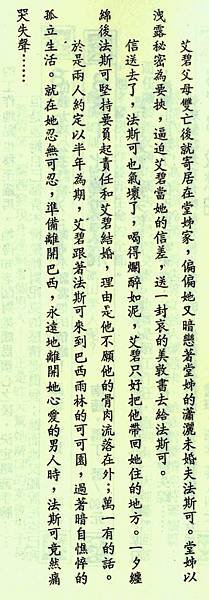 艾碧父母雙亡後就寄居在堂姊家，偏偏她又暗戀著堂姊的瀟灑未婚夫法斯可。堂姊以
洩露秘密為要挾，逼迫艾碧當她的信差，送一封哀的美敦書去給法斯可。
信送去了，法斯可也氣壞了，喝得爛醉如泥，艾碧只好把他帶回她住的地方。一夕纏
綿後法斯可堅持要負起責任和艾碧結婚，理由是他不願他的骨肉流落在外；萬一有的話。
於是兩人約定以半年為期，艾碧跟著法斯可來到巴西雨林的可可園，過著暗自憔悴的
孤立生活。就在她忍無可忍，準備離開巴西，永遠地離開她心愛的男人時，法斯可竟然痛
哭失聲……